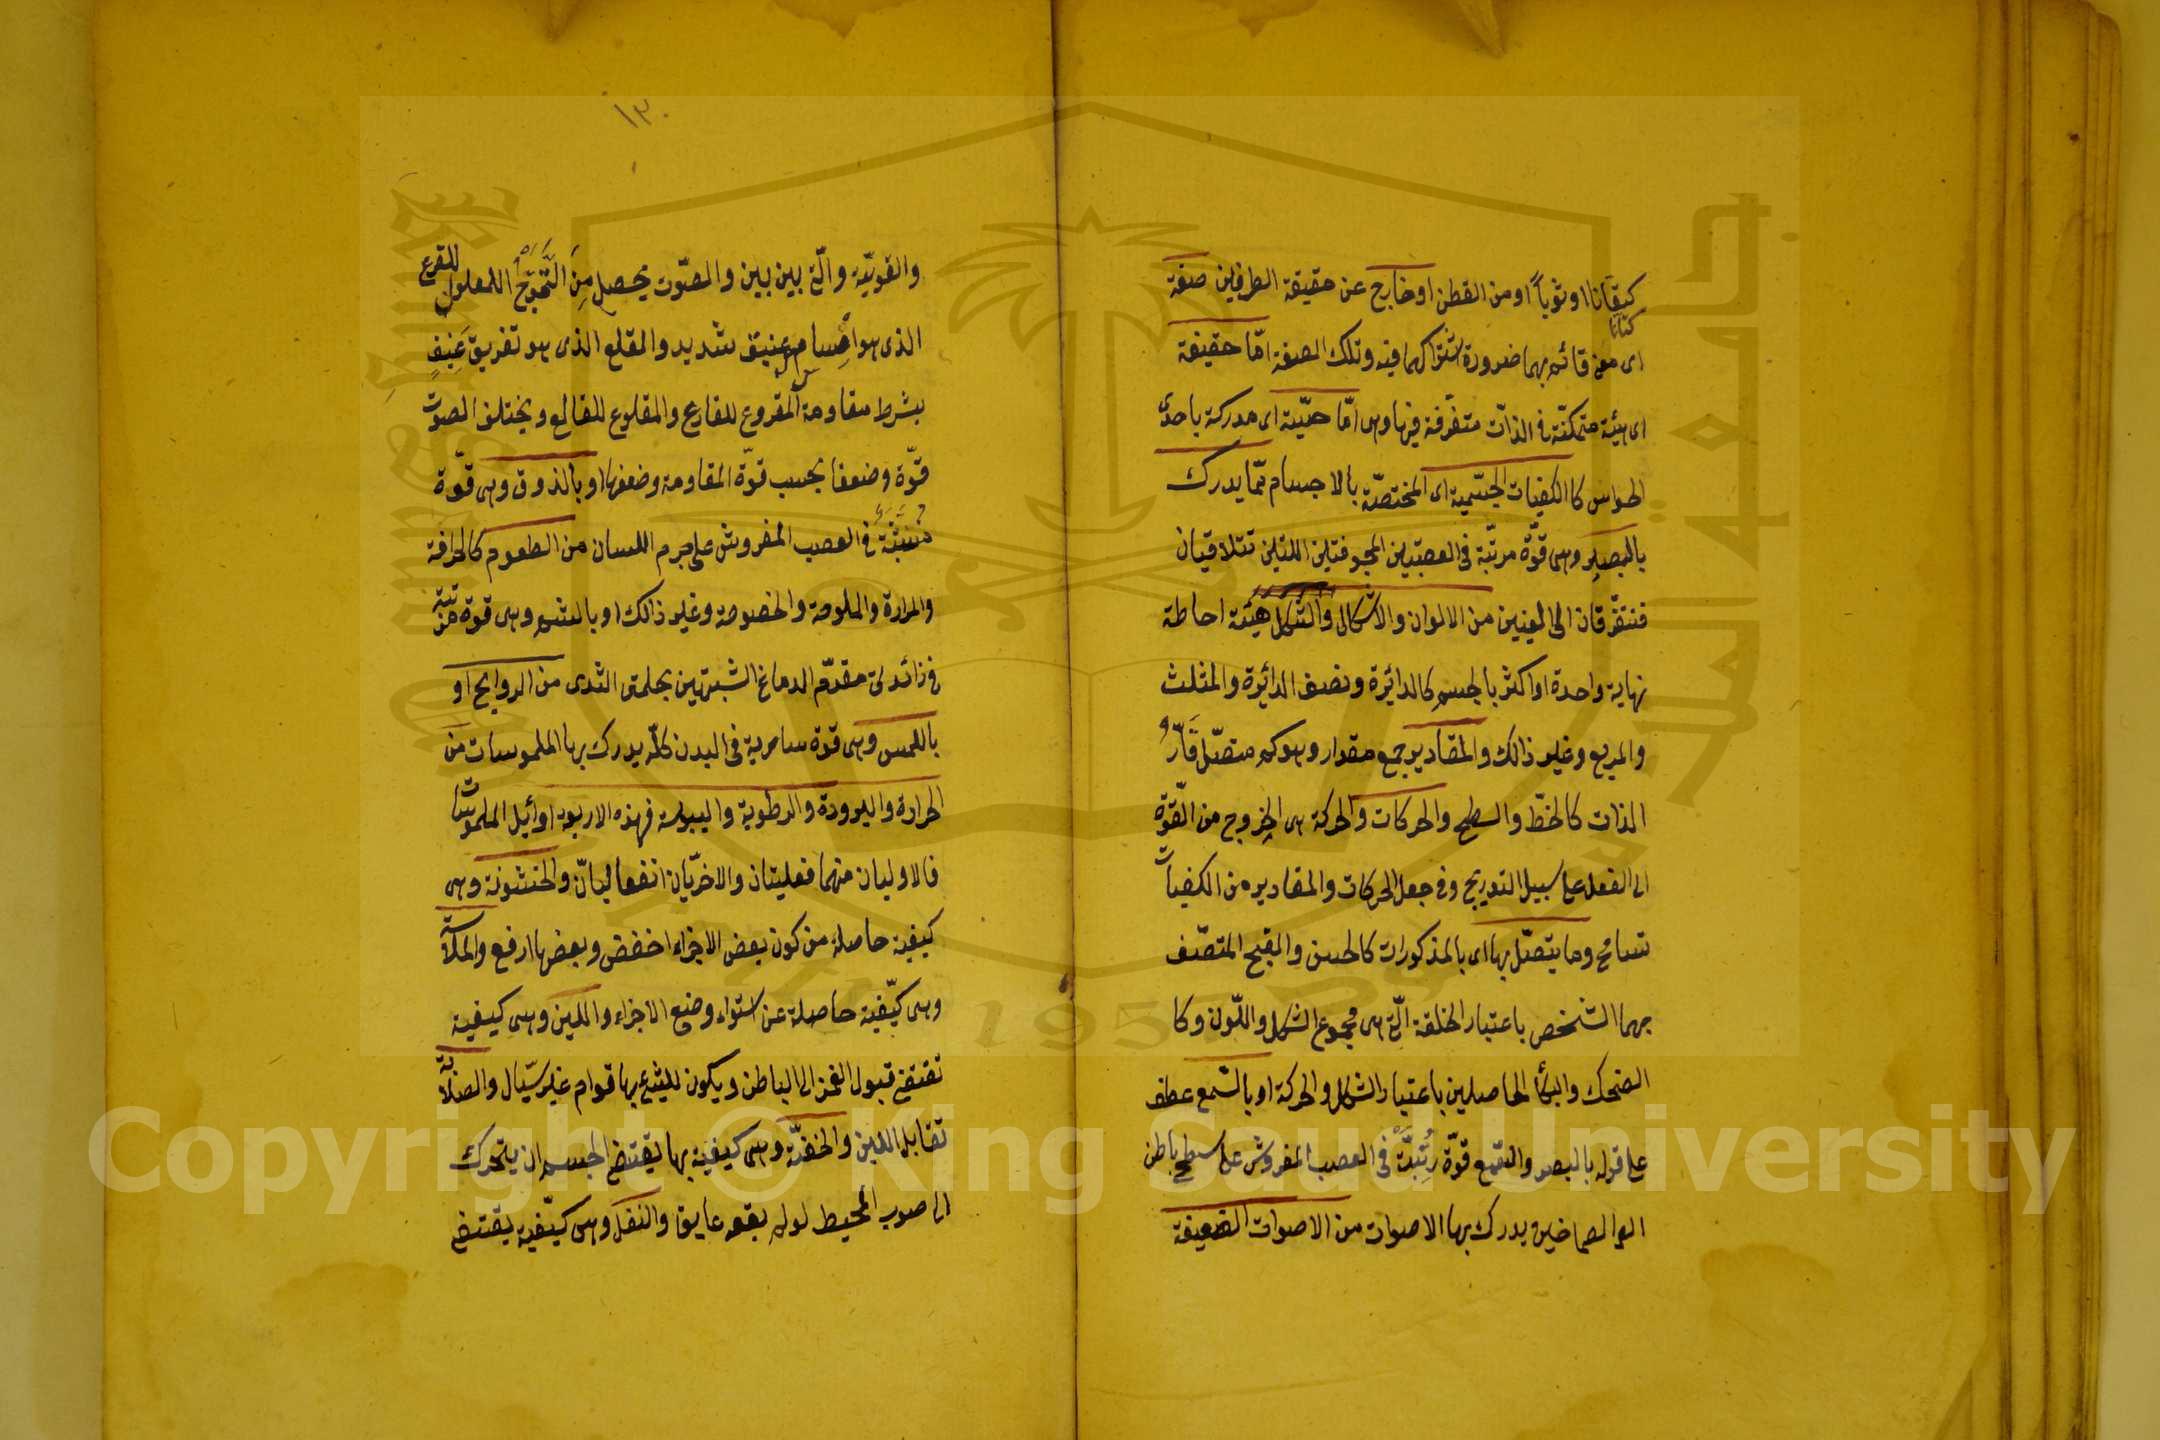 كتانا او ثوبا او من القطن او خارج عن حقيقة الطرفين صفة
كتانا
اى معنى قائم بهما ضرورة اشتراكهما فيه وتلك الصفة امّا حقيقية
اى هيئة متمكنّة فى الذات متقرّفة فيها وهى امّا حسّية اى مدركة باحدى
الحواس كا الكفيات الجسّمية اى المختصّة بالاجسام ممّا يدرك
بالبصر وهى قوّة مرتّبة فى العصبتين المجوفتين اللتين تتلاقيان
فتتفرّقان الى العينين من الالوان والاشكال والشكل هيئة احاطة
نهاية واحدة او اكثر بالجسم كالدائرة ونصف الدائرة والمثلث
والمربع وغير ذالك والمقادير جمع مقدار وهو كم متصّل قارّ
الذات كالخطّ والسطح والحركات والحركة هى الخروج من القوّة
الى الفعل على سبيل التدريج وفى جعل الحركات والمقادير من الكفيات
تسامح وما يتصّل بها اى بالمذكورات كالحسن والقبح المتصّف
بهما الشخص باعتبار الخلقة الّتى هى مجموع الشكل واللّون وكا
الضحك والبكا الحاصلين باعتبار الشكل والحركة او بالسّمع عطف
على قوله بالبصر والسّمع قوّة رُتِّبتْ فى العصب المفروش على سطح باطن
الصماخين ويدرك بها الاصوات من الاصوات الضعيفة
١٣٠
والقويّة والّتى بين بين والصّوت يحصل مِنَ التَّمَوُّجِ المعلول للقرع
الذى هو امساس عنيف شديد والقلع الذى هو تفريق عَنِيفٍ
بشرط مقاومة المقروع للقارع والمقلوع للقالع ويختلف الصوت
قوّة وضعفا بحسب قوّة المقاومة وضعفها او بالذوق وهى قوّة
منبثّة فى العصب المفروش على جرم اللسان من الطعوم كالحرافة
والمرارة والملوحة والحموضة وغير ذالك او بالشم وهى قوة مرتبة
فى زائدتى مقدّم الدماغ الشبيهتين بحلمتى الثدى من الروايح او
باللمس وهى قوة سارية فى البدن كلّه يدرك بها الملموسات من
الحرارة والبرودة والرطوبة واليبوسة فهذه الاربعة اوائل الملموسات
فالاوليان منهما فعليتان والاخريّان انفعاليتان والخشونة وهى
كيفية حاصلة من كون بعض الاجزاء اخفض وبعضها ارفع والملاسة
وهى كيّفية حاصلة عن استواء وضع الاجزاء واللين وهى كيفية
تقتضى قبول الغمز الى الباطن ويكون للشئ بها قوام غير سيّال والصلابة
تقابل اللين والخفّة وهى كيفية بها يقتضى الجسم ان يتحرك
الى صوب المحيط لو لم يعقه عايق والثقل وهى كيّفية يقتضى
جامعة الملك سعود
King Saud University
1957
Copyright © King Saud University